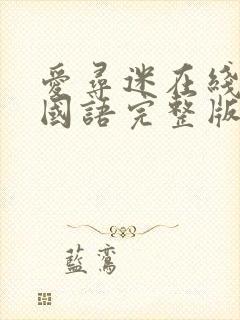 愛尋迷在綫
國語完整版
藍鸞